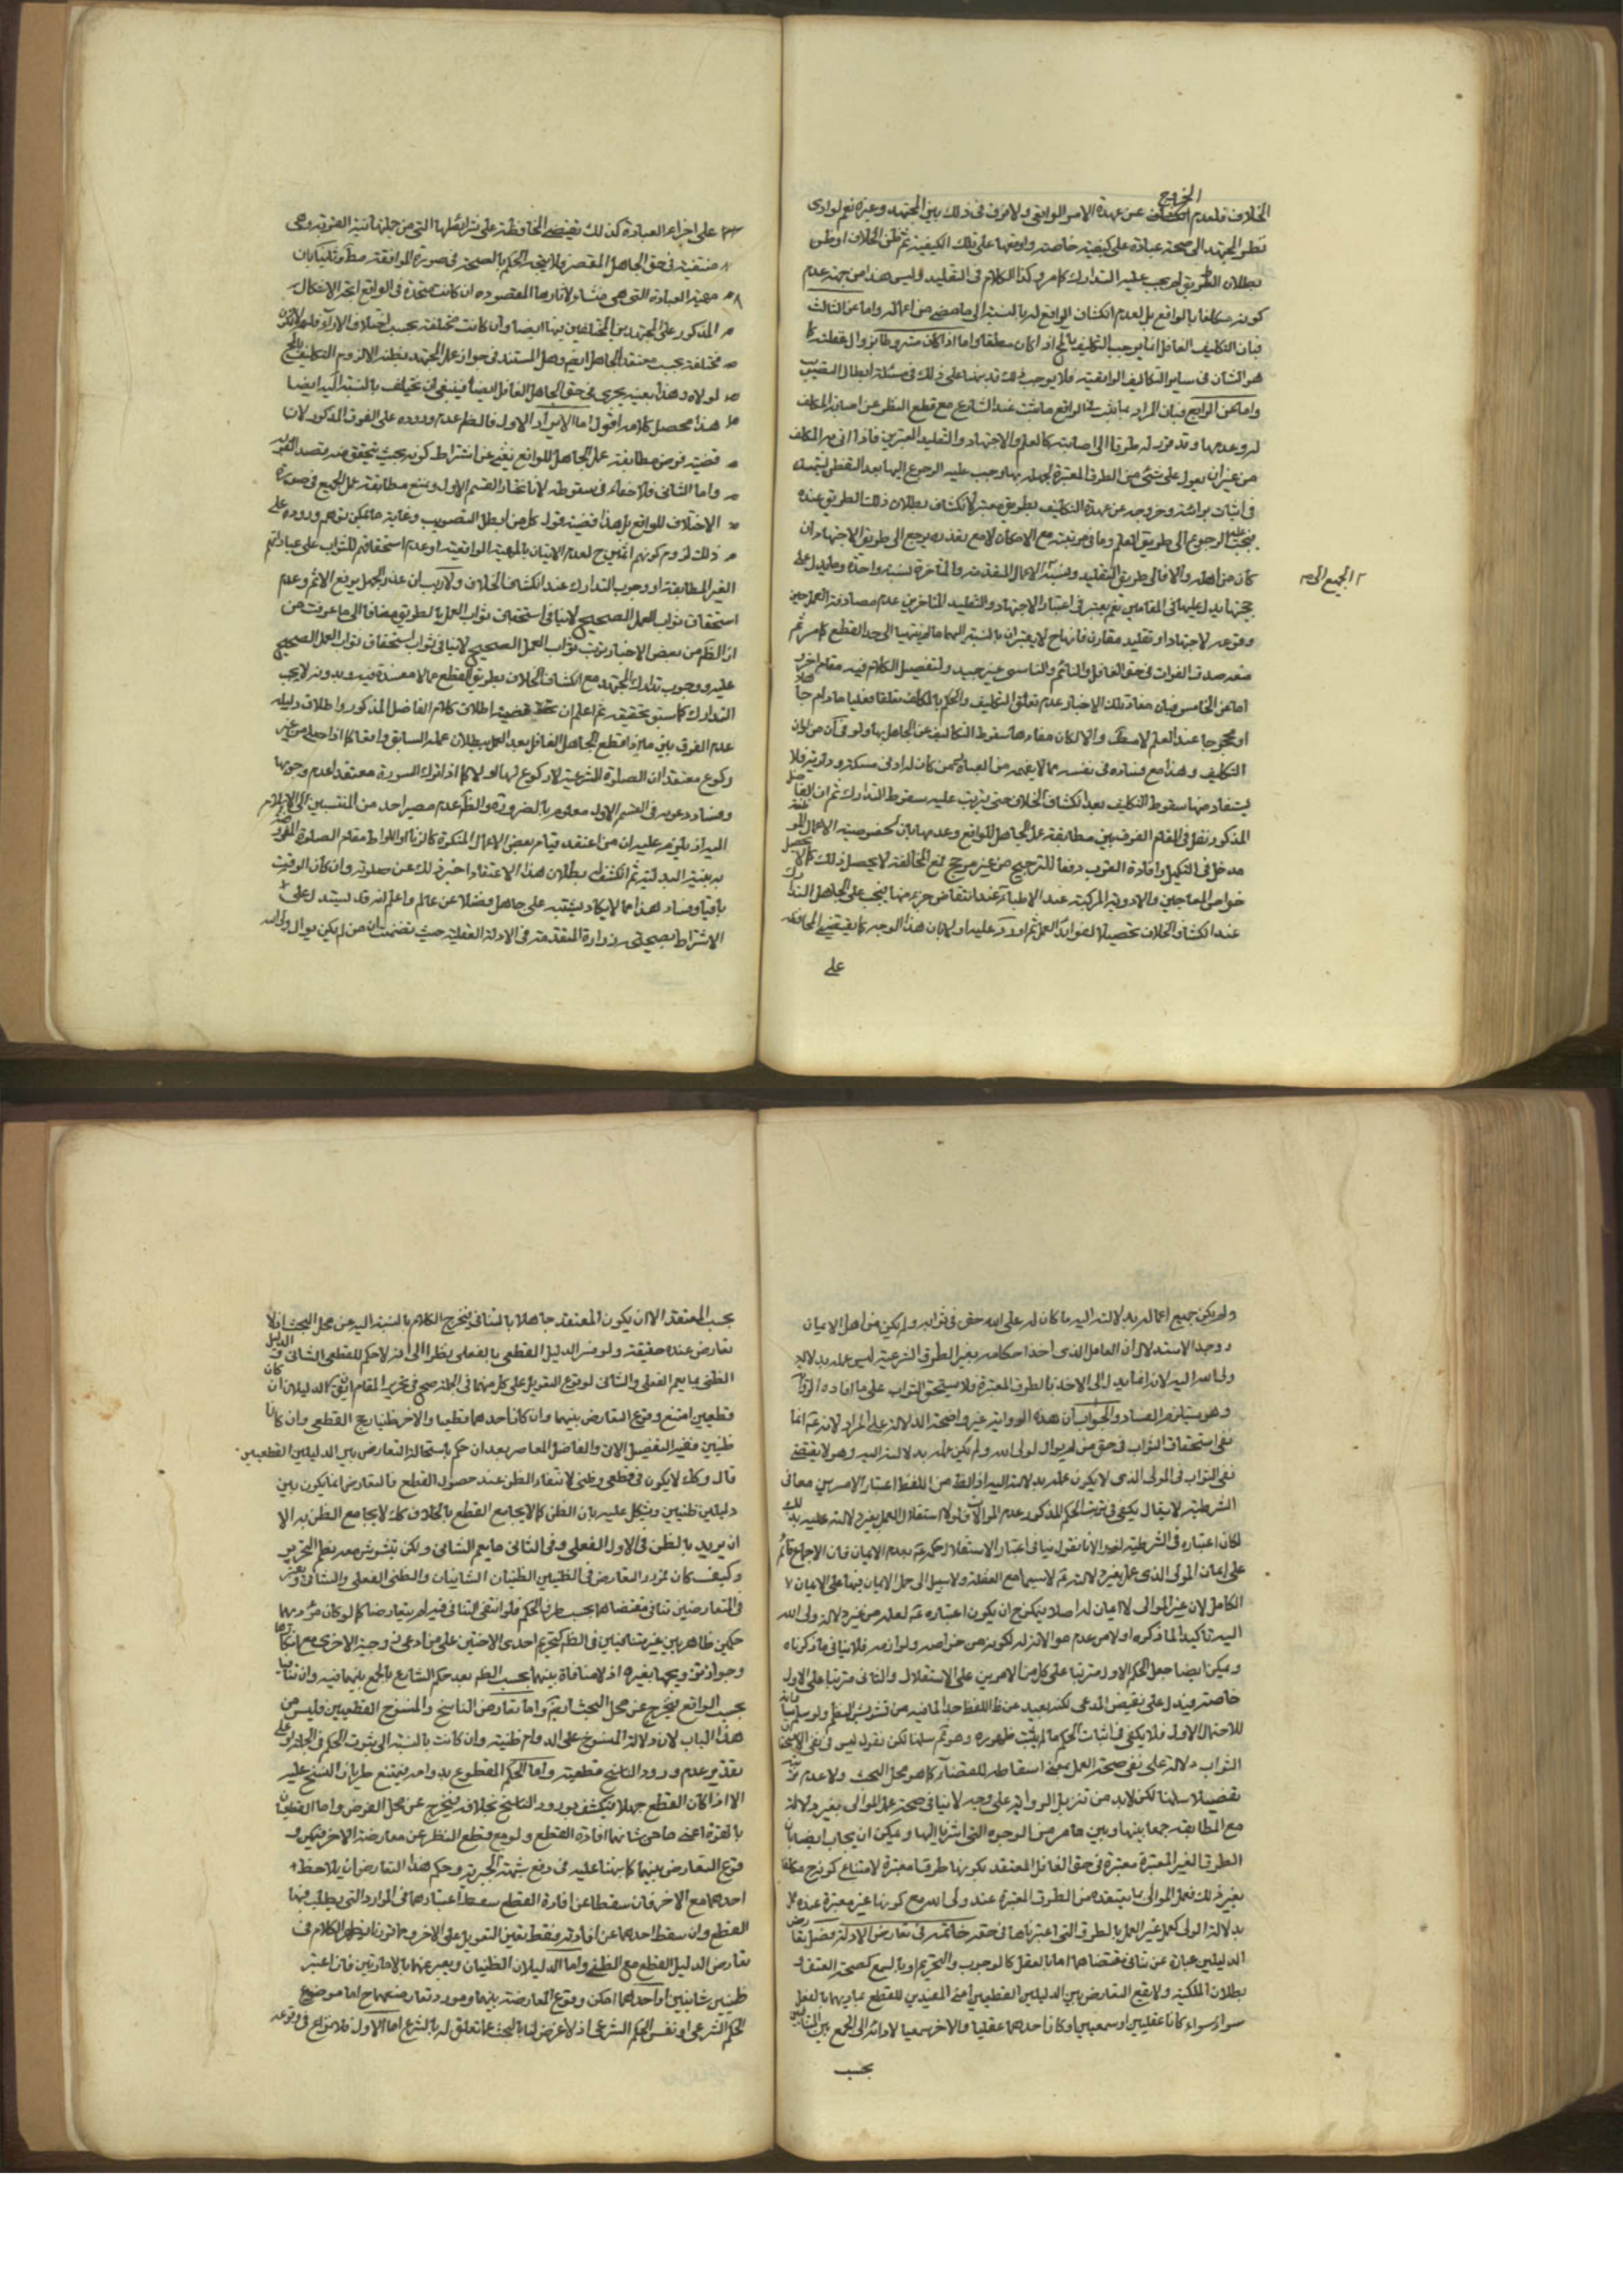 الخروج
الخلاف فلعدم انكشاف عن عهدة الامر الواقعي ولا فرق في ذلك بين المجتهد وغيره نعم لو ادى
نظر المجتهد الى صحة عبادة على كيفية خاصة واوقعها على تلك الكيفية ثم ظن الخلاف او ظن
بطلان الطريق لم يجب عليه التدارك كما مر وكذا الكلام في التقليد وليس هذا من جهة عدم
كونه مكلفا بالواقع بل لعدم انكشاف الواقع له بالنسبة الى ما مضى من اعماله واما عن الثالث
فبان التكليف الغافل انما يوجب التكليف بالمح اذا كان مطلقا واما اذا كان مشروطا بزوال غفلته كما
هو الشان في ساير التكاليف الواقعية فلا يوجب ذلك قد نبهنا على ذلك في مسئلة ابطال التصويب
واما عن الرابع فبان المراد بما يثبت في الواقع ما يثبت عند الشارع مع قطع النظر عن اصابة المكلف
له وعدمها وقد قرر له طرقا الى اصابته كالعلم والاجتهاد والتقليد المعتبرين فاذا اتى به المكلف
من غير ان يعول على شئ من الطرق المعتبرة لجهله بها وجب عليه الرجوع اليها بعد التفطن ليتمسك
في اثبات برائته وخروجه عن عهدة التكليف بطريق معتبر لانكشاف بطلان ذلك الطريق عنده
فيجب عليه الرجوع الى طريق العلم وما في مرتبته مع الامكان لا مع تعذره يرجع الى طريق الاجتهاد ان
كان من اهله والا فالى طريق التقليد ونسبة الاعمال المتقدمة والمتاخرة نسبة واحدة وما يدل على
حجتها يدل عليها في المقامين نعم يعتبر في اعتبار الاجتهاد والتقليد المتاخرين عدم مصادفة العمل حين
وقوعه لاجتهاد او تقليد مقارن فانهما ح لا يعتبران بالنسبة اليهما ما لم ينتهيا الى حد القطع كما مر ثم
منع صدق الفوات في حق الغافل والنائم والناسي غير جيد ولتفصيل الكلام فيه مقام اخر
اما عن الخامس فبان مفاد تلك الاخبار عدم تعلق التكليف والحكم بالمكلف تعلقا فعليا ما دام جاهلا
او محجوبا عنه العلم لا مطلقا والا لكان مفادها سقوط التكاليف عن الجاهل بها ولو في آن من اوان
التكليف وهذا مع فساده في نفسه مما لا يفهم من العبارة فمن كان له ادنى مسكة ودراية فلا
يستفاد منها سقوط التكليف بعد انكشاف الخلاف حتى يترتب عليه سقوط التدارك ثم ان الفاضل
المذكور نقل في المقام الفرق بين مطابقة عمل الجاهل للواقع وعدمها بان لخصوصية الاعمال الموظفة
مدخل في التكميل وافادة القرب دفعا للترجيح من غير مرجح فمع المخالفة لا يحصل ذلك كما لا يحصل
خواص المعاجين والادوية المركبة عند الاطباء عند انتقاص جزء منها فيجب على الجاهل التدارك
عند انكشاف الخلاف تحصيلا لفوائد العمل ثم اورد عليه اولا بان هذا الوجه كما يقتضي المحافظة
على
الجميع الى
على اجزاء العبادة كذلك يقتضي المحافظة على شرائطها التي من جملتها نية القربة وهي
منتفية في حق الجاهل المقصر فلا يتجه الحكم بالصحة في صورة الموافقة مطلقا وثانيا بان
مهية العبادة التي هي منشاء لآثارها المقصودة ان كانت متحدة في الواقع اتجه الاشكال
المذكور على المجتهدين المختلفين بها ايضا وان كانت مختلفة بحسب اختلاف الاراء فلم لا تكون
مختلفة بحسب معتقد الجاهل ايضا وهل المستند في جواز عمل المجتهد بظنه الا لزوم التكليف بالمح
لولاه وهذا بعينه يجري في حق الجاهل الغافل ايضا فينبغي ان تختلف بالنسبة اليه ايضا
هذا محصل كلامه اقول اما الايراد الاول فالظ عدم وروده على الفرق المذكور لان
قضية فرض مطابقة عمل الجاهل للواقع يغني عن اشتراط كونه بحيث يتحقق منه قصد القربة
واما الثاني فلا خفاء في سقوطه لانا نختار القسم الاول ونمنع مطابقة عمل الجميع في صورة
الاختلاف للواقع بل هذا قضية قول كل من ابطل التصويب وغاية ما يمكن توهم وروده على
ذلك لزوم كونهم آثمين ح لعدم الاتيان بالمهية الواقعية او عدم استحقاقهم للثواب على عباداتهم
الغير المطابقة او وجوب التدارك عند انكشاف الخلاف ولا ريب ان عذر الجهل يرفع الاثم وعدم
استحقاق ثواب العمل الصحيح لا ينافي استحقاق ثواب العمل بالطريق مضافا الى ما عرفت من
ان الظ من بعض الاخبار ترتب ثواب العمل الصحيح لا ينافي ثواب استحقاق ثواب العمل الصحيح
عليه ووجوب تدارك المجتهد مع انكشاف الخلاف بطريق القطع مما لا مفسدة فيه وبدونه لا يجب
التدارك كما ستق تحقيقه ثم اعلم ان قضية اطلاق كلام الفاضل المذكور واطلاق دليله
عدم الفرق بين ما اذا قطع الجاهل الغافل بعد العمل ببطلان عمله السابق واقعا كما اذا صلى من غير
ركوع معتقدا ان الصلوة الشرعية لا ركوع لها او لا كما اذا ترك السورة معتقدا عدم وجوبها
وفساد دعويه في القسم الاول معلوم بالضرورة والظ عدم مصير احد من المنتسبين الى الاسلام
اليه اذ يلزم عليه ان من اعتقد قيام بعض الاعمال المنكرة كالزنا واللواط مقام الصلوة المفروضة
به بنية البدلية ثم انكشف بطلان هذا الاعتقاد اجزء ذلك عن صلوته وان كان الوقت
باقيا وفساد هذا مما لا يكاد يشتبه على جاهل فضلا عن عالم واعلم انه قد يستدل على
الاشتراط بصحيحة زرارة المتقدمة في الادلة العقلية حيث تضمنت ان من لم يكن يوال ولي الله
ولم يكن جميع اعماله بدلالته اليه ما كان له على الله حق في ثوابه ولم يكن من اهل الايمان
ووجه الاستدلال ان العامل الذي اخذ احكامه بغير الطرق الشرعية ليس عمله بدلالة
ولي الله اليه لانه انما يدل الى الاخذ بالطرق المعتبرة فلا يستحق الثواب على ما افاده الرواية
وهو يستلزم الفساد والجواب ان هذه الرواية غير واضحة الدلالة على المراد لانه ع انما
نفى استحقاق الثواب في حق من لم يوال لولي الله ولم يكن عمله بدلالته اليه وهو لا يقتضي
نفى الثواب في المولى الذي لا يكون عمله بدلالته اليه اذ الظ من اللفظ اعتبار الامرين معا في
الشرطية لا يقال يكفي في ترتب الحكم المذكور عدم الموالات فلولا استقلال العمل بغير دلالته عليه بذلك
لكان اعتباره في الشرطية لغوا لانا نقول ينافي اعتبار الاستقلال حكمه ع بعدم الايمان فان الاجماع قائم
على ايمان المولى الذي عمل بغير دلالته ع لا سيما مع الغفلة ولا سبيل الى حمل الايمان فيها على الايمان
الكامل لان غير الموالى لا ايمان له اصلا فيمكن ح ان يكون اعتباره ع لعمله من غير دلالة ولي الله
اليه تاكيدا لما ذكره اولا من عدم موالاته له لكونه من خواصه ولوازمه فلا ينافي ما ذكرناه
ويمكن ايضا جعل الحكم الاول مترتبا على كل من الامرين على الاستقلال والثاني مترتبا على الاول
خاصة فيدل على نقيض المدعى لكنه بعيد من ظ اللفظ جدا لما فيه من تشويش النظم ولو سلم مساواته
للاحتمال الاول فلا يكفي في اثبات الحكم ما لم يثبت ظهوره وهو ثم سلمنا لكن نقول ليس في نفى الاستحقاق
الثواب دلالة على نفى صحة العمل بمعنى اسقاطه للقضاء كما هو محل البحث ولا عدم ترتبه
تفضيلا سلمنا لكن لابد من تنزيل الرواية على وجه لا ينافي صحة عمل الموالى بغير دلالة
مع المطابقة جمعا بينها وبين ما مر من الوجوه التي اشرنا اليها ويمكن ان يجاب ايضا بان
الطرق الغير المعتبرة معتبرة في حق الغافل المعتقد بكونها طرقا معتبرة لامتناع كونه ح مكلفا
بغير ذلك فعمل الموالى بما يعتقده من الطرق المعتبرة عند ولي الله مع كونها غير معتبرة عنده عمل
بدلالة الولى كعمل غير العمل بالطرق التي اعتبرناها في حقه خاتمة في تعارض الادلة فصل تعارض
الدليلين عبارة عن تنافي مقتضاهما اما بالعقل كالوجوب والتحريم او بالسمع كصحة العتق و
بطلان الملكية ولا يقع التعارض بين الدليلين القطعيين اعني المفيدين للقطع بمباديهما بالفعل
سواء كانا عقليين او سمعيين او كان احدهما عقليا والاخر سمعيا لادائه الى الجمع بين المتنافيين
بحسب
بحسب المعتقد الا ان يكون المعتقد جاهلا بالتنافي فيخرج الكلام بالنسبة اليه عن محل البحث اذ لا
تعارض عنده حقيقة ولو فسر الدليل القطعي بالفعلي نظرا الى انه لا حكم للقطعي الشاني و الدليل
الظني بما يعم الفعلي والشاني لوقوع التعويل على كل منهما في الجملة صح في تحرير المقام ان يق الدليلان ان كان
قطعيين امتنع وقوع التعارض بينهما وان كان احدهما قطعيا والاخر ظنيا رجح القطعي وان كانا
ظنيين ففيه التفصيل الآتي والفاضل المعاصر بعد ان حكم باستحالة التعارض بين الدليلين القطعيين
قال وكذلك لا يكون في قطعي وظني لانتفاء الظن عند حصول القطع فالتعارض انما يكون بين
دليلين ظنيين ويشكل عليه بان الظن كما لا يجامع القطع بالخلاف كذلك لا يجامع الظن به الا
ان يريد بالظن في الاول الفعلي وفي الثاني ما يعم الشاني ولكن تشوش معه نظم التحرير
وكيف كان فمورد التعارض في الظنيين الظنيان الشانيان والظني الفعلي والشاني ويعتبر
في المتعارضين تنافي مقتضاهما بحسب طرفي الحكم فلو انتفى التنافي فيه لم يتعارضا كما لو كان مؤديهما
حكمين ظاهريين غير متنافيين في الظ كتحريم احدى الاختين على من ادعى زوجية الاخرى مع انكارها
وجواز تزويجها بغيره اذ لا منافاة بينهما بحسب الظ بعد حكم الشارع بالجمع بينهما فيه وان تنافيا
بحسب الواقع فيخرج عن محل البحث ايضا واما تعارض الناسخ والمنسوخ القطعيين فليس من
هذا الباب لان دلالة المنسوخ على الدوام ظنية وان كانت بالنسبة الى ثبوت الحكم في الجملة او على
تقدير عدم ورود الناسخ قطعية واما الحكم المقطوع بدوامه فيمتنع طريان النسخ عليه
الا اذا كان القطع جهلا فينكشف بورود الناسخ بخلافه فيخرج عن محل الفرض واما القطعيان
بالقوة اعني ما من شانهما افادة القطع ولو مع قطع النظر عن معارضة الاخر فيمكن و
قوع التعارض بينهما كما نبهنا عليه في دفع شبهة الجبرية وحكم هذا التعارض ان يلاحظ
احدهما مع الاخر فان سقطا عن افادة القطع سقط اعتبادهما في الموارد التي يطلب فيها
القطع وان سقط احدهما عن افادته فقط تعين التعويل على الاخر وبما قررنا يظهر الكلام في
تعارض الدليل القطع مع الظني واما الدليلان الظنيان ويعبر عنهما بالامارتين فان اعتبر
ظنيين شانيين او احدهما امكن وقوع المعارضة بينهما ومورد تعارضهما ح اما موضوع
الحكم الشرعي او نفس الحكم الشرعي اذ لا غرض لنا بالبحث عما تعلق له بالشرع اما الاول فلا نزاع في وقوعه